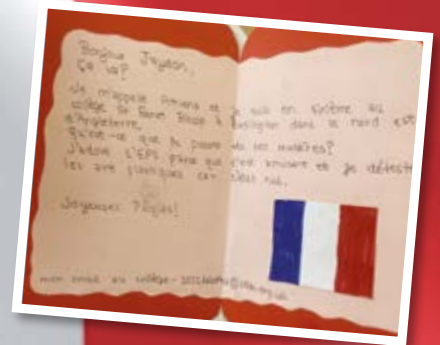 Bonjour Jaydon,
Ça va?
Je m'appelle et je suis en sixième au
collège St Bishop à dans le nord est
d'Angleterre.
Qu'est-ce que tu penses de tes matières?
J'adore L'EPS parce que c'est amusant et je déteste
les arts plastiques car c'est nul.
Joyeuses Pâques!
mon email au collège -